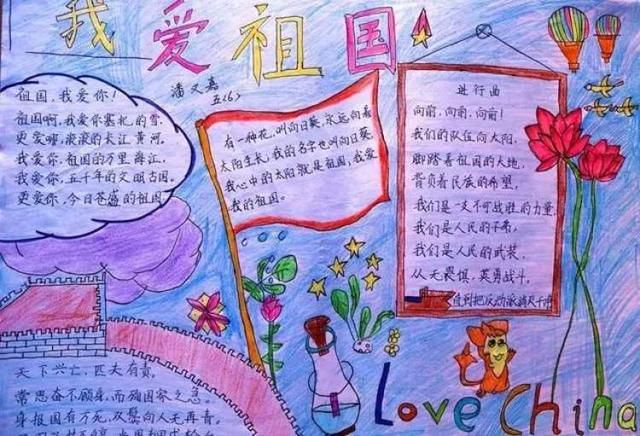 我爱祖国
潘又嘉
五(6)
祖国，我爱你！
祖国啊，我爱你塞北的雪.
更爱哪，滚滚的长江黄河。
我爱你，祖国的万里海江，
我爱你，五千年的文明古国。
更爱你，今日苍盛的祖国.
有一种花，叫向日葵，永远向着
太阳生长，我的名字也叫向日葵.
我心中的太阳就是祖国，我爱
我的祖国。
进行曲
向前，向前，向前！
我们的队伍向太阳，
脚踏着祖国的大地，
背负着民族的希望，
我们是一支不可战胜的力量，
我们是人民的子弟，
我们是人民的武装，
从无畏惧，英勇战斗。
直到把反动派消灭干净
天下兴亡，匹夫有责。
常思奋不顾身，而殉国家之急。
身报国有万死，双鬓向人无再青。
Love China